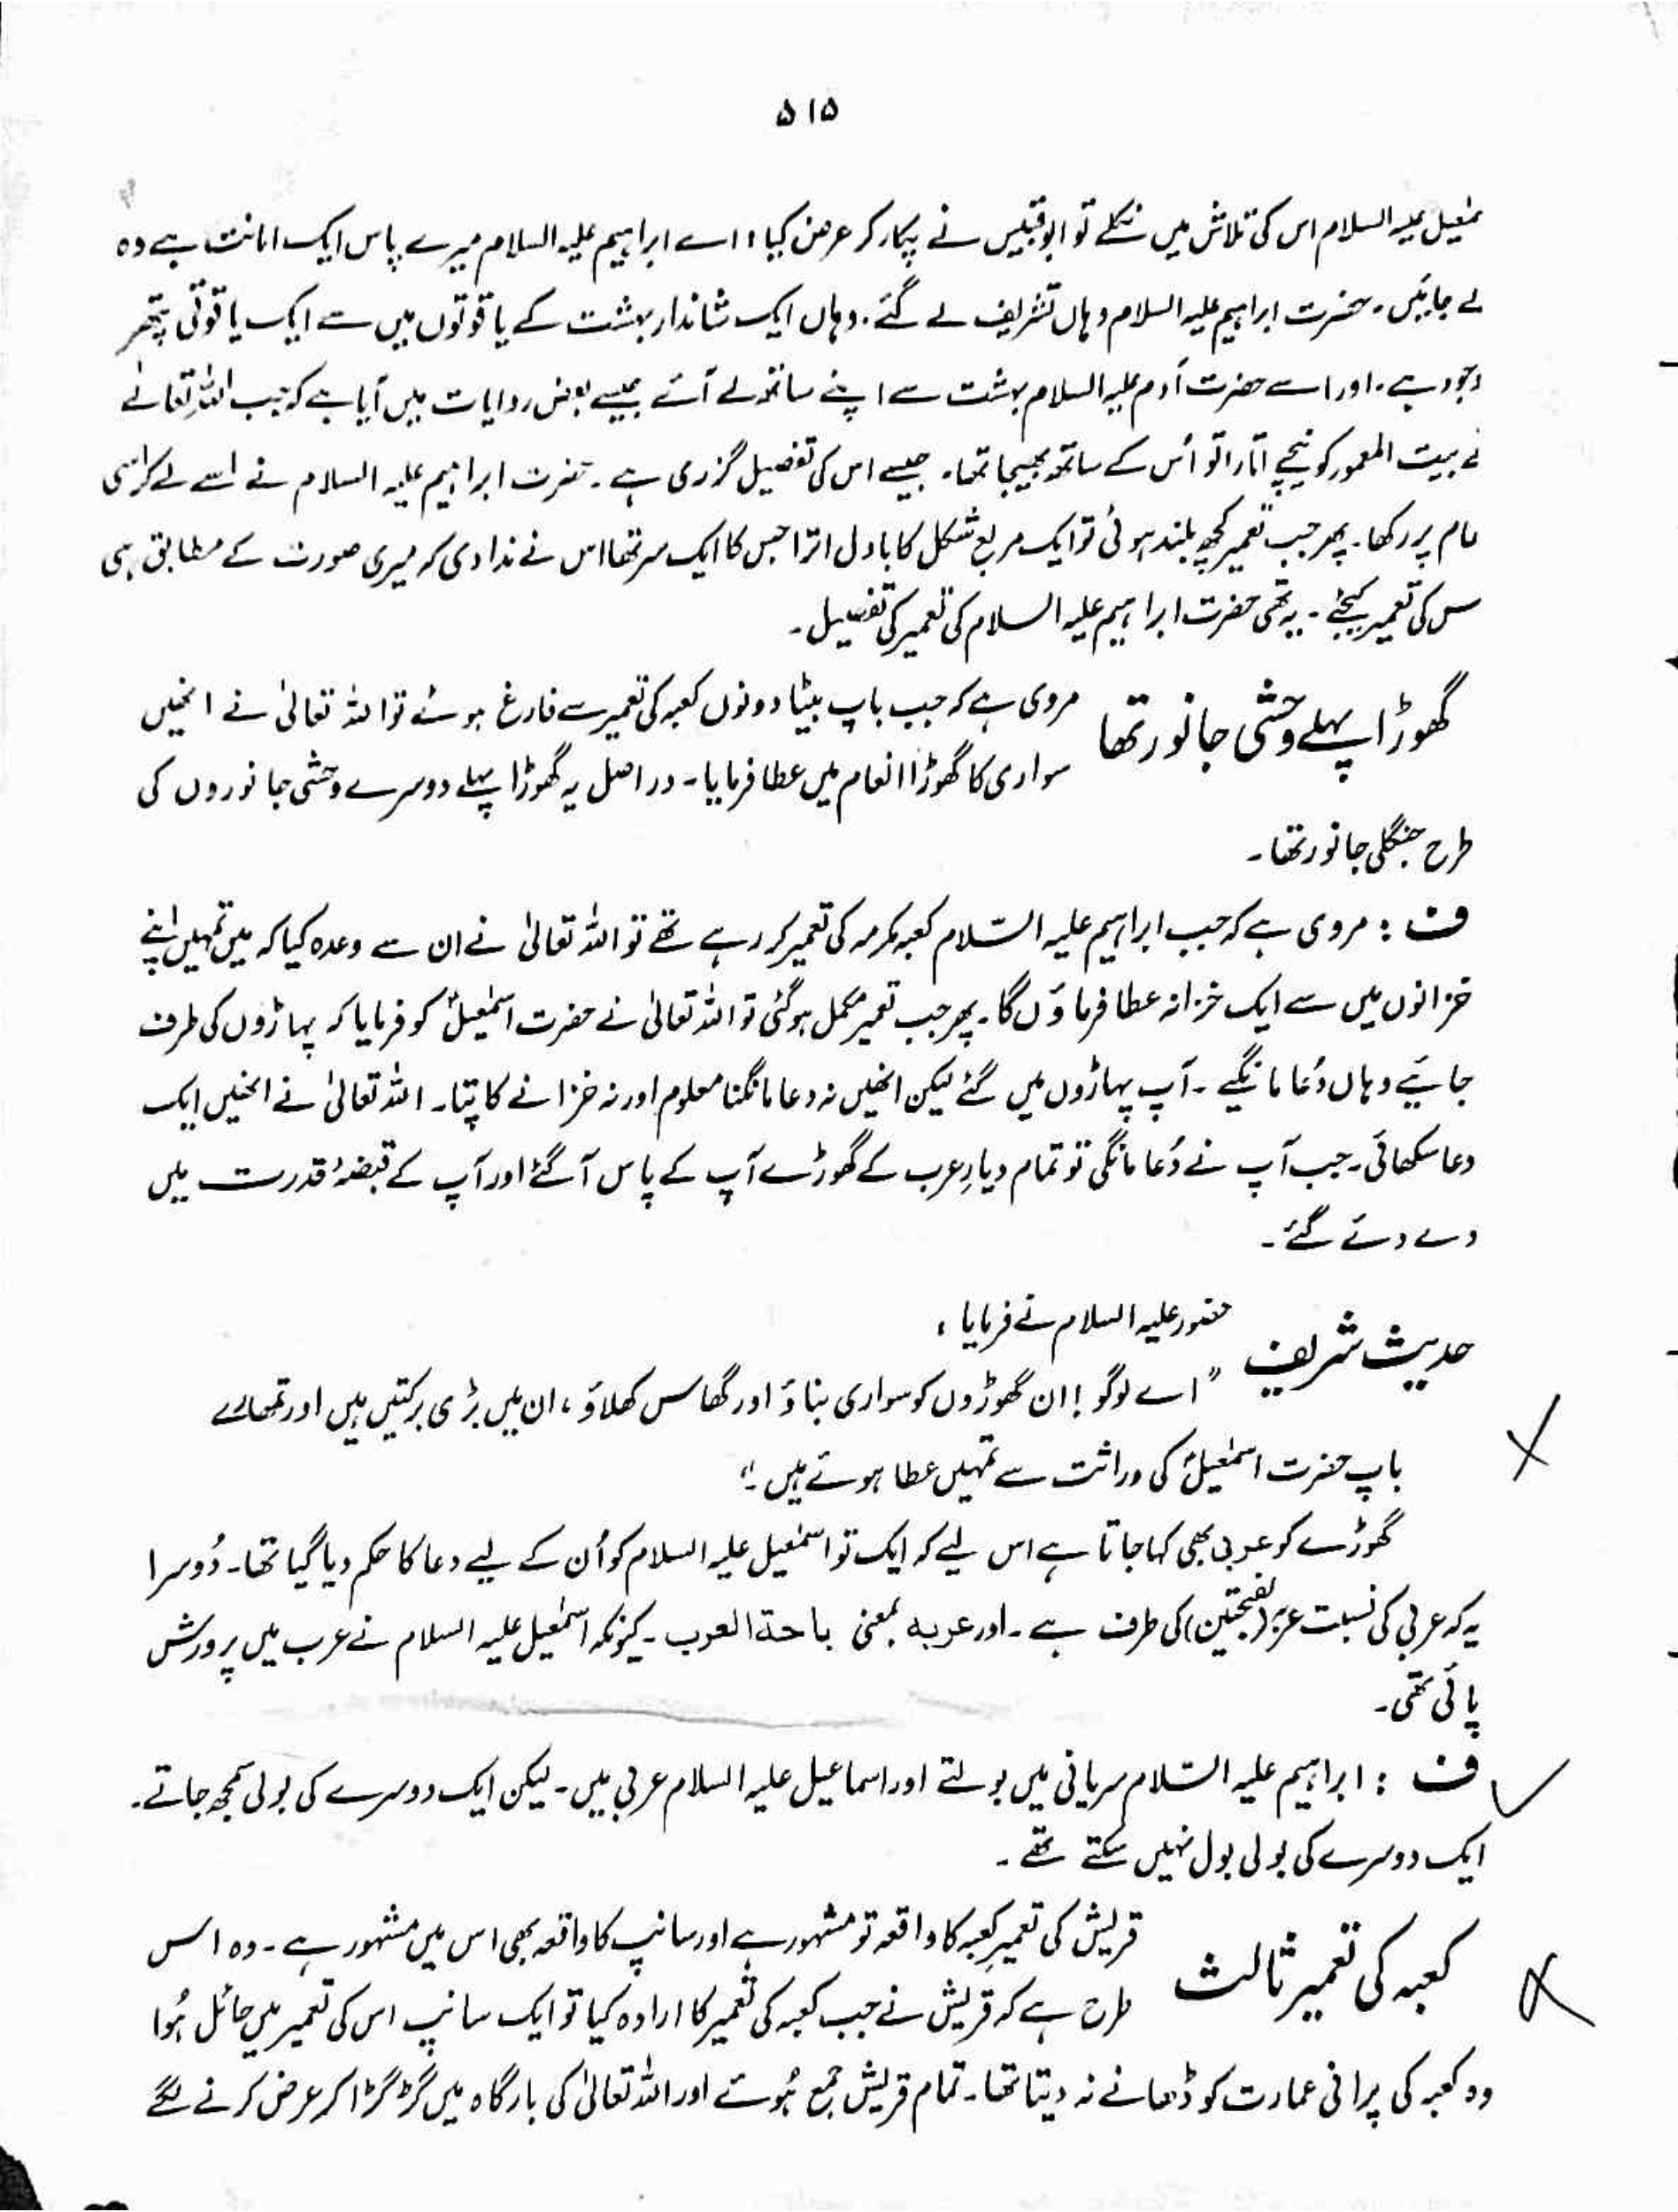 ۵۱۵
سمٰعیل علیہ السلام اس کی تلاش میں نکلے تو ابوقبیس نے پکار کر عرض کیا ، اے ابراہیم علیہ السلام میرے پاس ایک امانت ہے وہ
لے جائیں ۔ حضرت ابراہیم علیہ السلام وہاں تشریف لے گئے ۔ وہاں ایک شاندار بہشت کے یاقوتوں میں سے ایک یاقوتی پتھر
وجود ہے ۔ اور اسے حضرت آدم علیہ السلام بہشت سے اپنے ساتھ لے آئے جیسے بعض روایات میں آیا ہے کہ جب اللہ تعالٰے
نے بیت المعمور کو نیچے اتارا تو اُس کے ساتھ بھیجا تھا ۔ جیسے اس کی تفصیل گزری ہے ۔ حضرت ابراہیم علیہ السلام نے اسے لے کر اسی
مام پر رکھا ۔ پھر جب تعمیر کچھ بلند ہوئی تو ایک مربع شکل کا بادل اترا جس کا ایک سر تھا اس نے ندا دی کہ میری صورت کے مطابق ہی
س کی تعمیر کیجئے ۔ یہ تھی حضرت ابراہیم علیہ السلام کی تعمیر کی تفصیل ۔
گھوڑا پہلے وحشی جانور تھا مروی ہے کہ جب باپ بیٹا دونوں کعبہ کی تعمیر سے فارغ ہوئے تو اللہ تعالیٰ نے انھیں
سواری کا گھوڑا انعام میں عطا فرمایا ۔ در اصل یہ گھوڑا پہلے دوسرے وحشی جانوروں کی
طرح جنگلی جانور تھا ۔
ف : مروی ہے کہ جب ابراہیم علیہ السّلام کعبہ مکرمہ کی تعمیر کر رہے تھے تو اللہ تعالیٰ نے ان سے وعدہ کیا کہ میں تمہیں اپنے
خزانوں میں سے ایک خزانہ عطا فرماؤں گا ۔ پھر جب تعمیر مکمل ہوگئی تو اللہ تعالیٰ نے حضرت اسمٰعیلؑ کو فرمایا کہ پہاڑوں کی طرف
جائیے وہاں دُعا مانگیے ۔ آپ پہاڑوں میں گئے لیکن انھیں نہ دعا مانگنا معلوم اور نہ خزانے کا پتا ۔ اللہ تعالیٰ نے انھیں ایک
دعا سکھائی ۔ جب آپ نے دُعا مانگی تو تمام دیارِ عرب کے گھوڑے آپ کے پاس آ گئے اور آپ کے قبضۂ قدرت میں
دے دئے گئے ۔
حدیث شریف حضور علیہ السلام نے فرمایا ،
” اے لوگو ! ان گھوڑوں کو سواری بناؤ اور گھاس کھلاؤ ، ان میں بڑی برکتیں ہیں اور تمھارے
باپ حضرت اسمٰعیلؑ کی وراثت سے تمہیں عطا ہوئے ہیں ۔“
گھوڑے کو عربی بھی کہا جاتا ہے اس لیے کہ ایک تو اسمٰعیل علیہ السلام کو اُن کے لیے دعا کا حکم دیا گیا تھا ۔ دُوسرا
یہ کہ عربی کی نسبت عربہ (بفتحتین) کی طرف ہے ۔ اور عربہ بمعنی باحة العرب ۔ کیونکہ اسمٰعیل علیہ السلام نے عرب میں پرورش
پائی تھی ۔
ف : ابراہیم علیہ السّلام سریانی میں بولتے اور اسماعیل علیہ السلام عربی میں ۔ لیکن ایک دوسرے کی بولی سمجھ جاتے ۔
ایک دوسرے کی بولی بول نہیں سکتے تھے ۔
کعبہ کی تعمیر ثالث قریش کی تعمیرِ کعبہ کا واقعہ تو مشہور ہے اور سانپ کا واقعہ بھی اس میں مشہور ہے ۔ وہ اس
طرح ہے کہ قریش نے جب کعبہ کی تعمیر کا ارادہ کیا تو ایک سانپ اس کی تعمیر میں حائل ہُوا
وہ کعبہ کی پرانی عمارت کو ڈھانے نہ دیتا تھا ۔ تمام قریش جمع ہُوئے اور اللہ تعالیٰ کی بارگاہ میں گڑگڑا کر عرض کرنے لگے